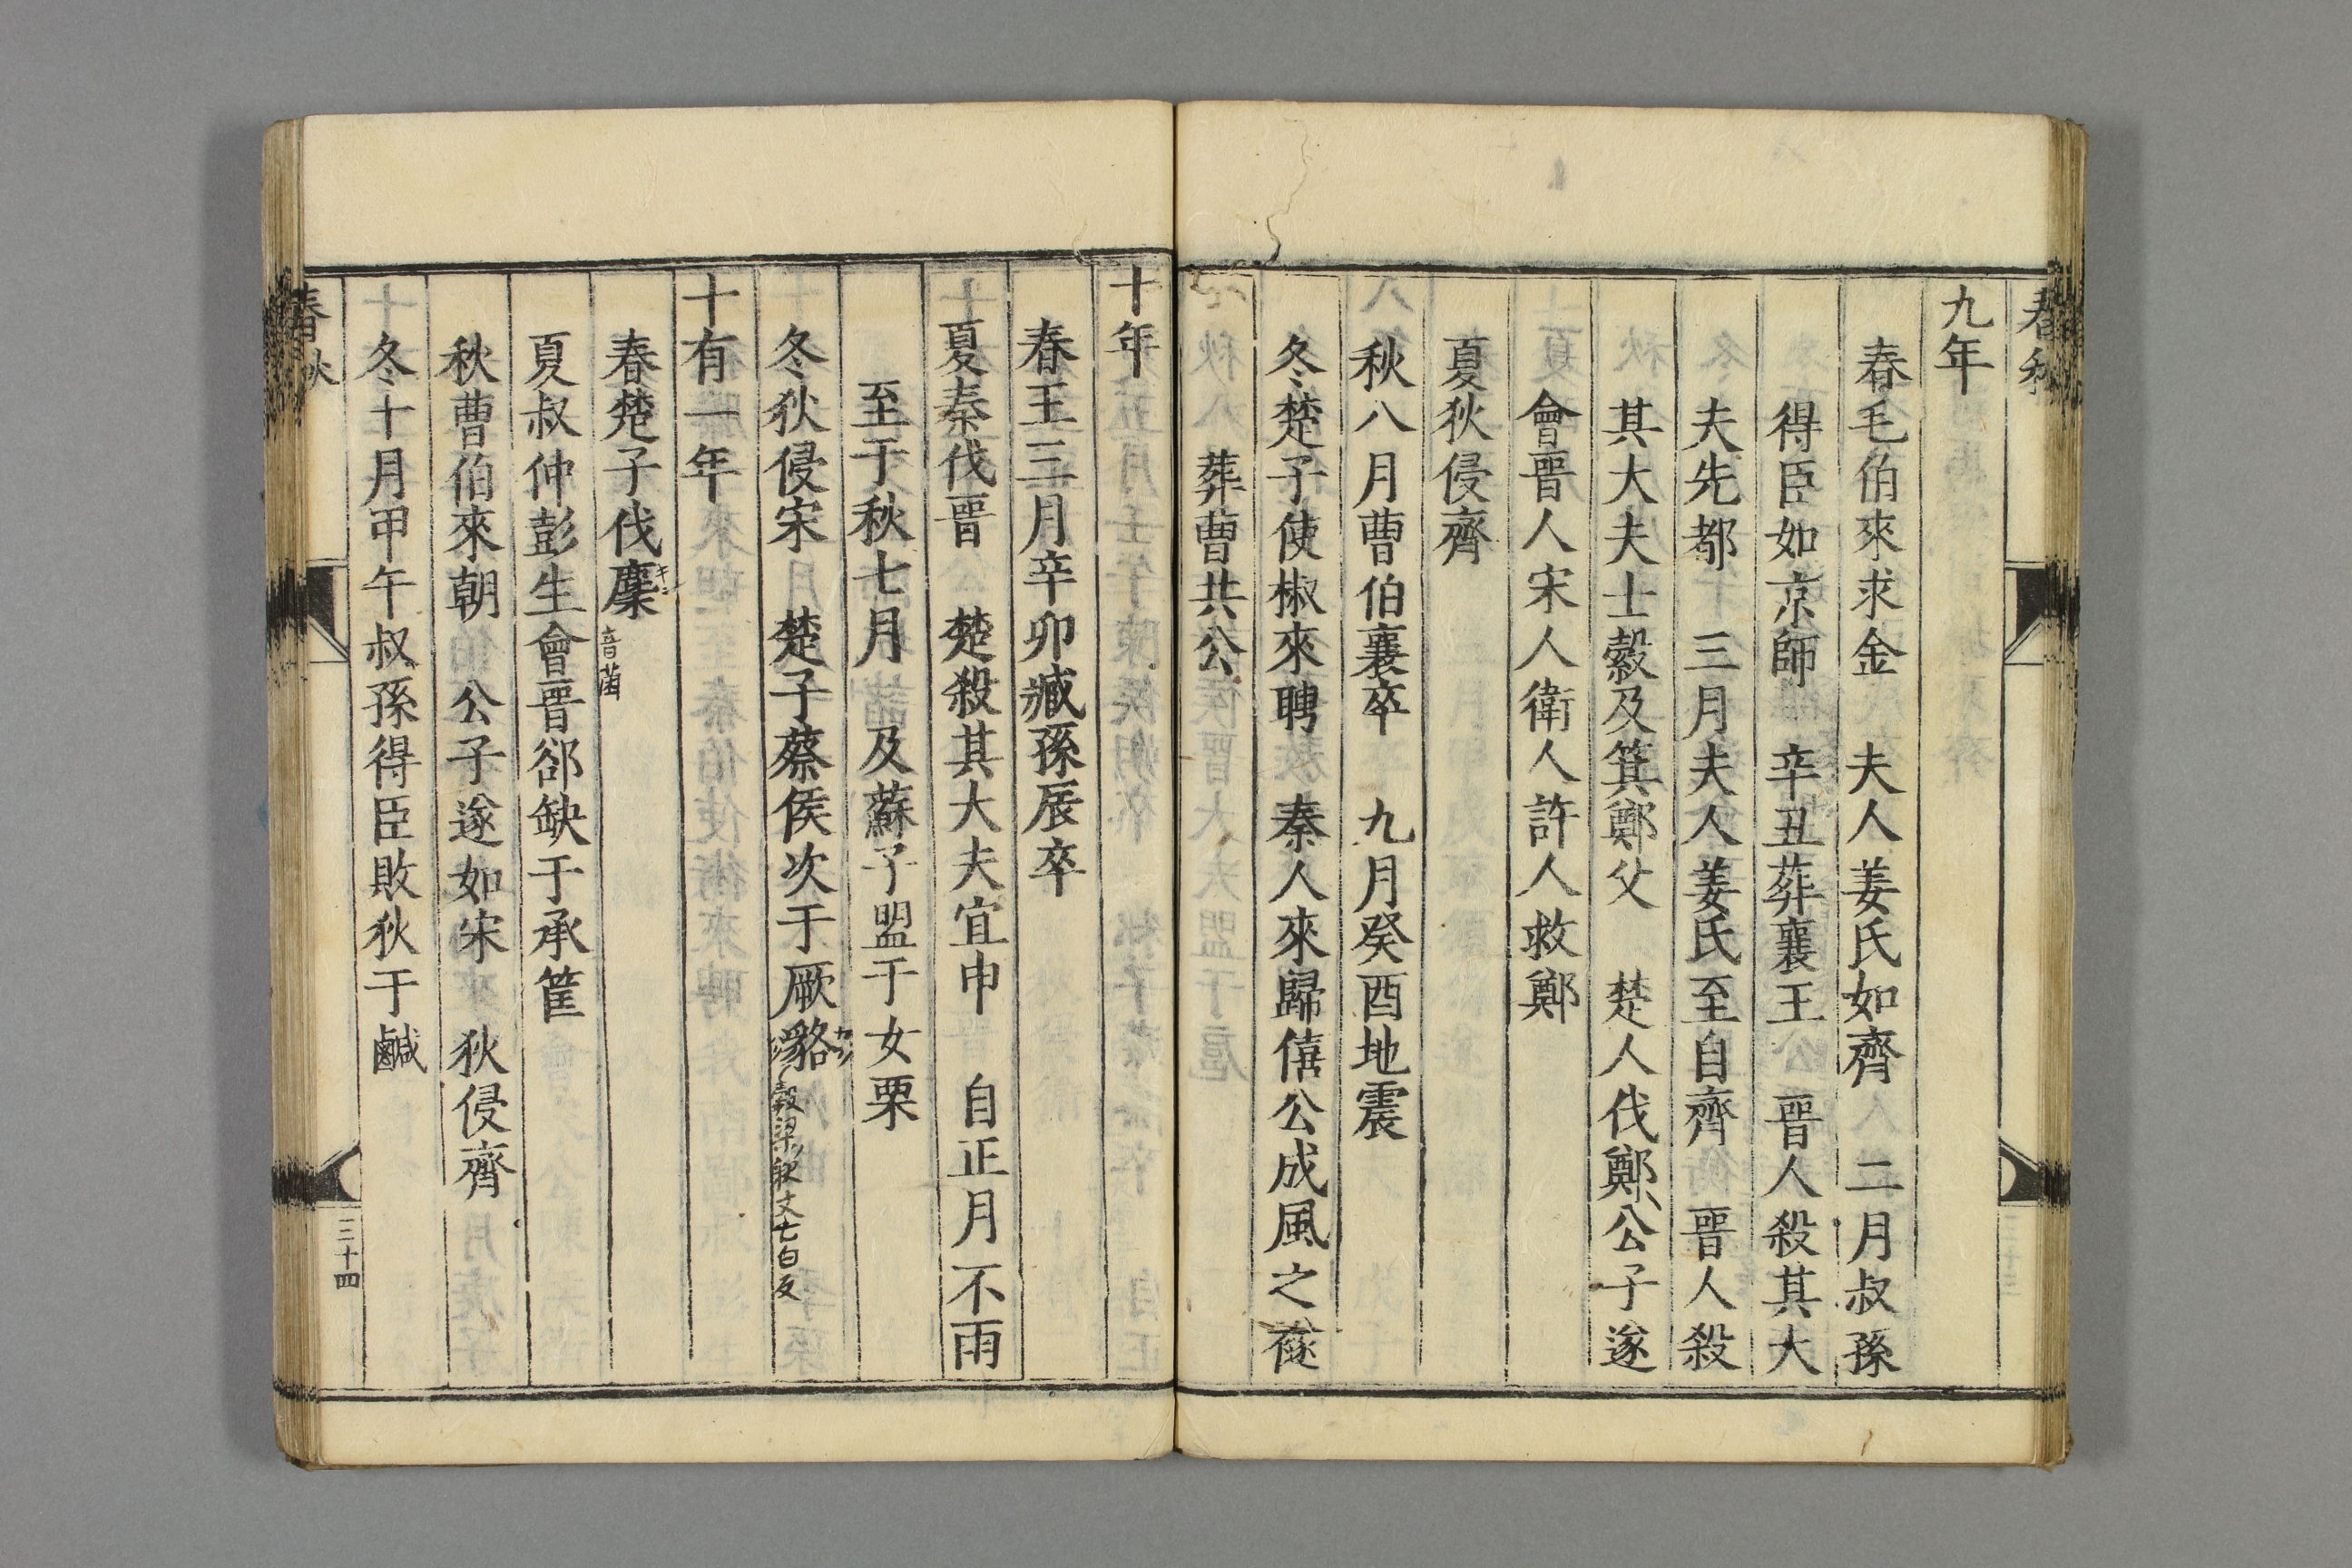 春秋
九年
春毛伯來求金　夫人姜氏如齊　二月叔孫
得臣如京師　辛丑葬襄王　晉人殺其大
夫先都　三月夫人姜氏至自齊　晉人殺
其大夫士縠及箕鄭父　楚人伐鄭公子遂
會晉人宋人衛人許人救鄭
夏狄侵齊
秋八月曹伯襄卒　九月癸酉地震
冬楚子使椒來聘　秦人來歸僖公成風之襚
葬曹共公
十年
春王三月辛卯臧孫辰卒
夏秦伐晉　楚殺其大夫宜申　自正月不雨
至于秋七月　及蘇子盟于女栗
冬狄侵宋　楚子蔡侯次于厥貉
穀梁釈文亡白反
十有一年
春楚子伐麇
音菌
夏叔仲彭生會晉郤缺于承筐
秋曹伯來朝　公子遂如宋　狄侵齊
冬十月甲午叔孫得臣敗狄于鹹
春秋
三十四